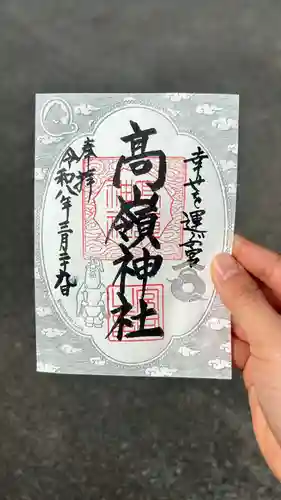 幸せを運ぶ宮
高嶺神社
奉拝
令和八年三月二十九日